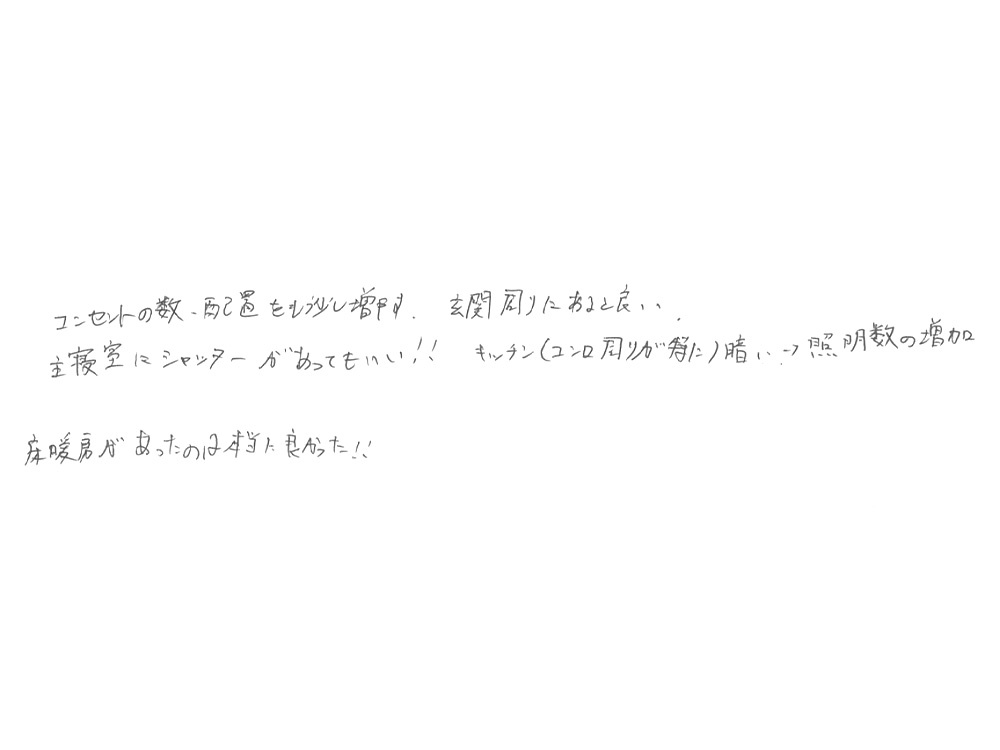 コンセントの数、配置をもう少し増やす. 玄関周りにあると良い.
主寝室にシャッターがあってもいい!! キッチン(コンロ周りが特に)暗い→照明数の増加
床暖房があったのは本当に良かった!!